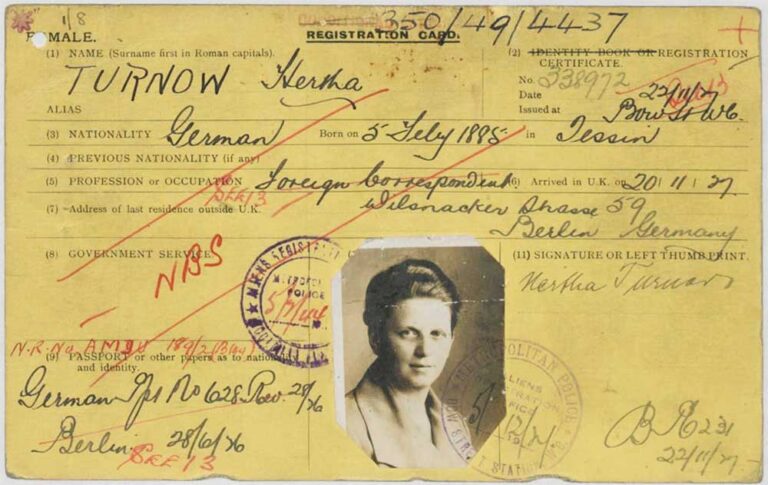 1/8
350/49/4437
MALE.
REGISTRATION CARD.
(1) NAME (Surname first in Roman capitals).
TURNOW Hertha
ALIAS
(2) IDENTITY BOOK OR REGISTRATION
CERTIFICATE.
No. 338972
Date 22/11/27
Issued at Bow St WC.
(3) NATIONALITY German Born on 5 July 1885 in Tessin
(4) PREVIOUS NATIONALITY (if any)
(5) PROFESSION or OCCUPATION Foreign Correspondent
(6) Arrived in U.K. on 20/11/27.
SEE 13
(7) Address of last residence outside U.K. Wilsnacker Strasse 59
Berlin Germany
(8) GOVERNMENT SERVICE
NBS
(11) SIGNATURE OR LEFT THUMB PRINT.
Hertha Turnow
ALIENS REGISTRATION
POLICE
N.R. No. AMBU 189/2
(9) PASSPORT or other papers as to nationality
and identity.
German Ppt No 628 Rev. 28/26
Berlin 28/6/26
SEE 13
METROPOLITAN POLICE
ALIENS
REGISTRATION
OFFICE
BOW STREET STATION
BR231
22/11/27